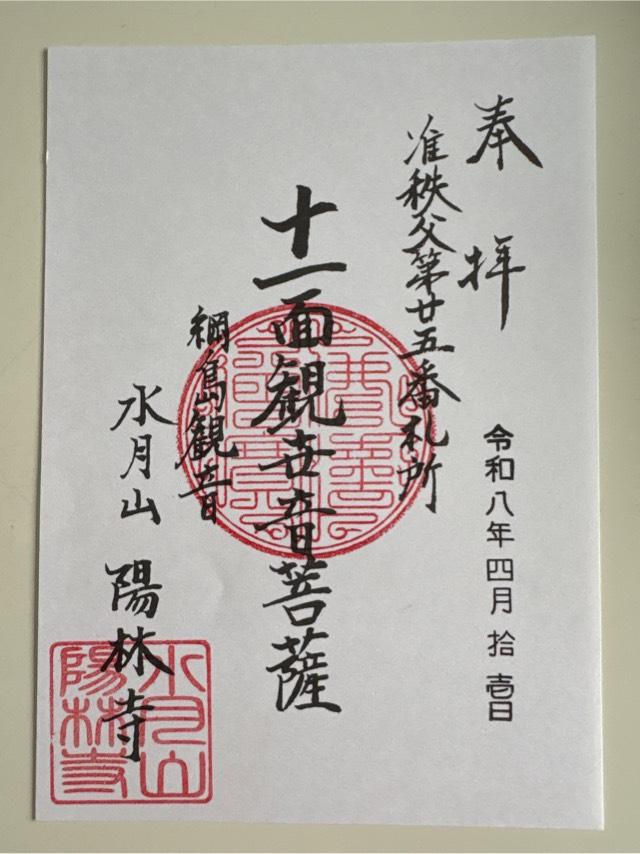 奉拝
令和八年四月拾壱日
准秩父第廿五番札所
十一面観世音菩薩
綱島観音
水月山 陽林寺
水月山
陽林寺